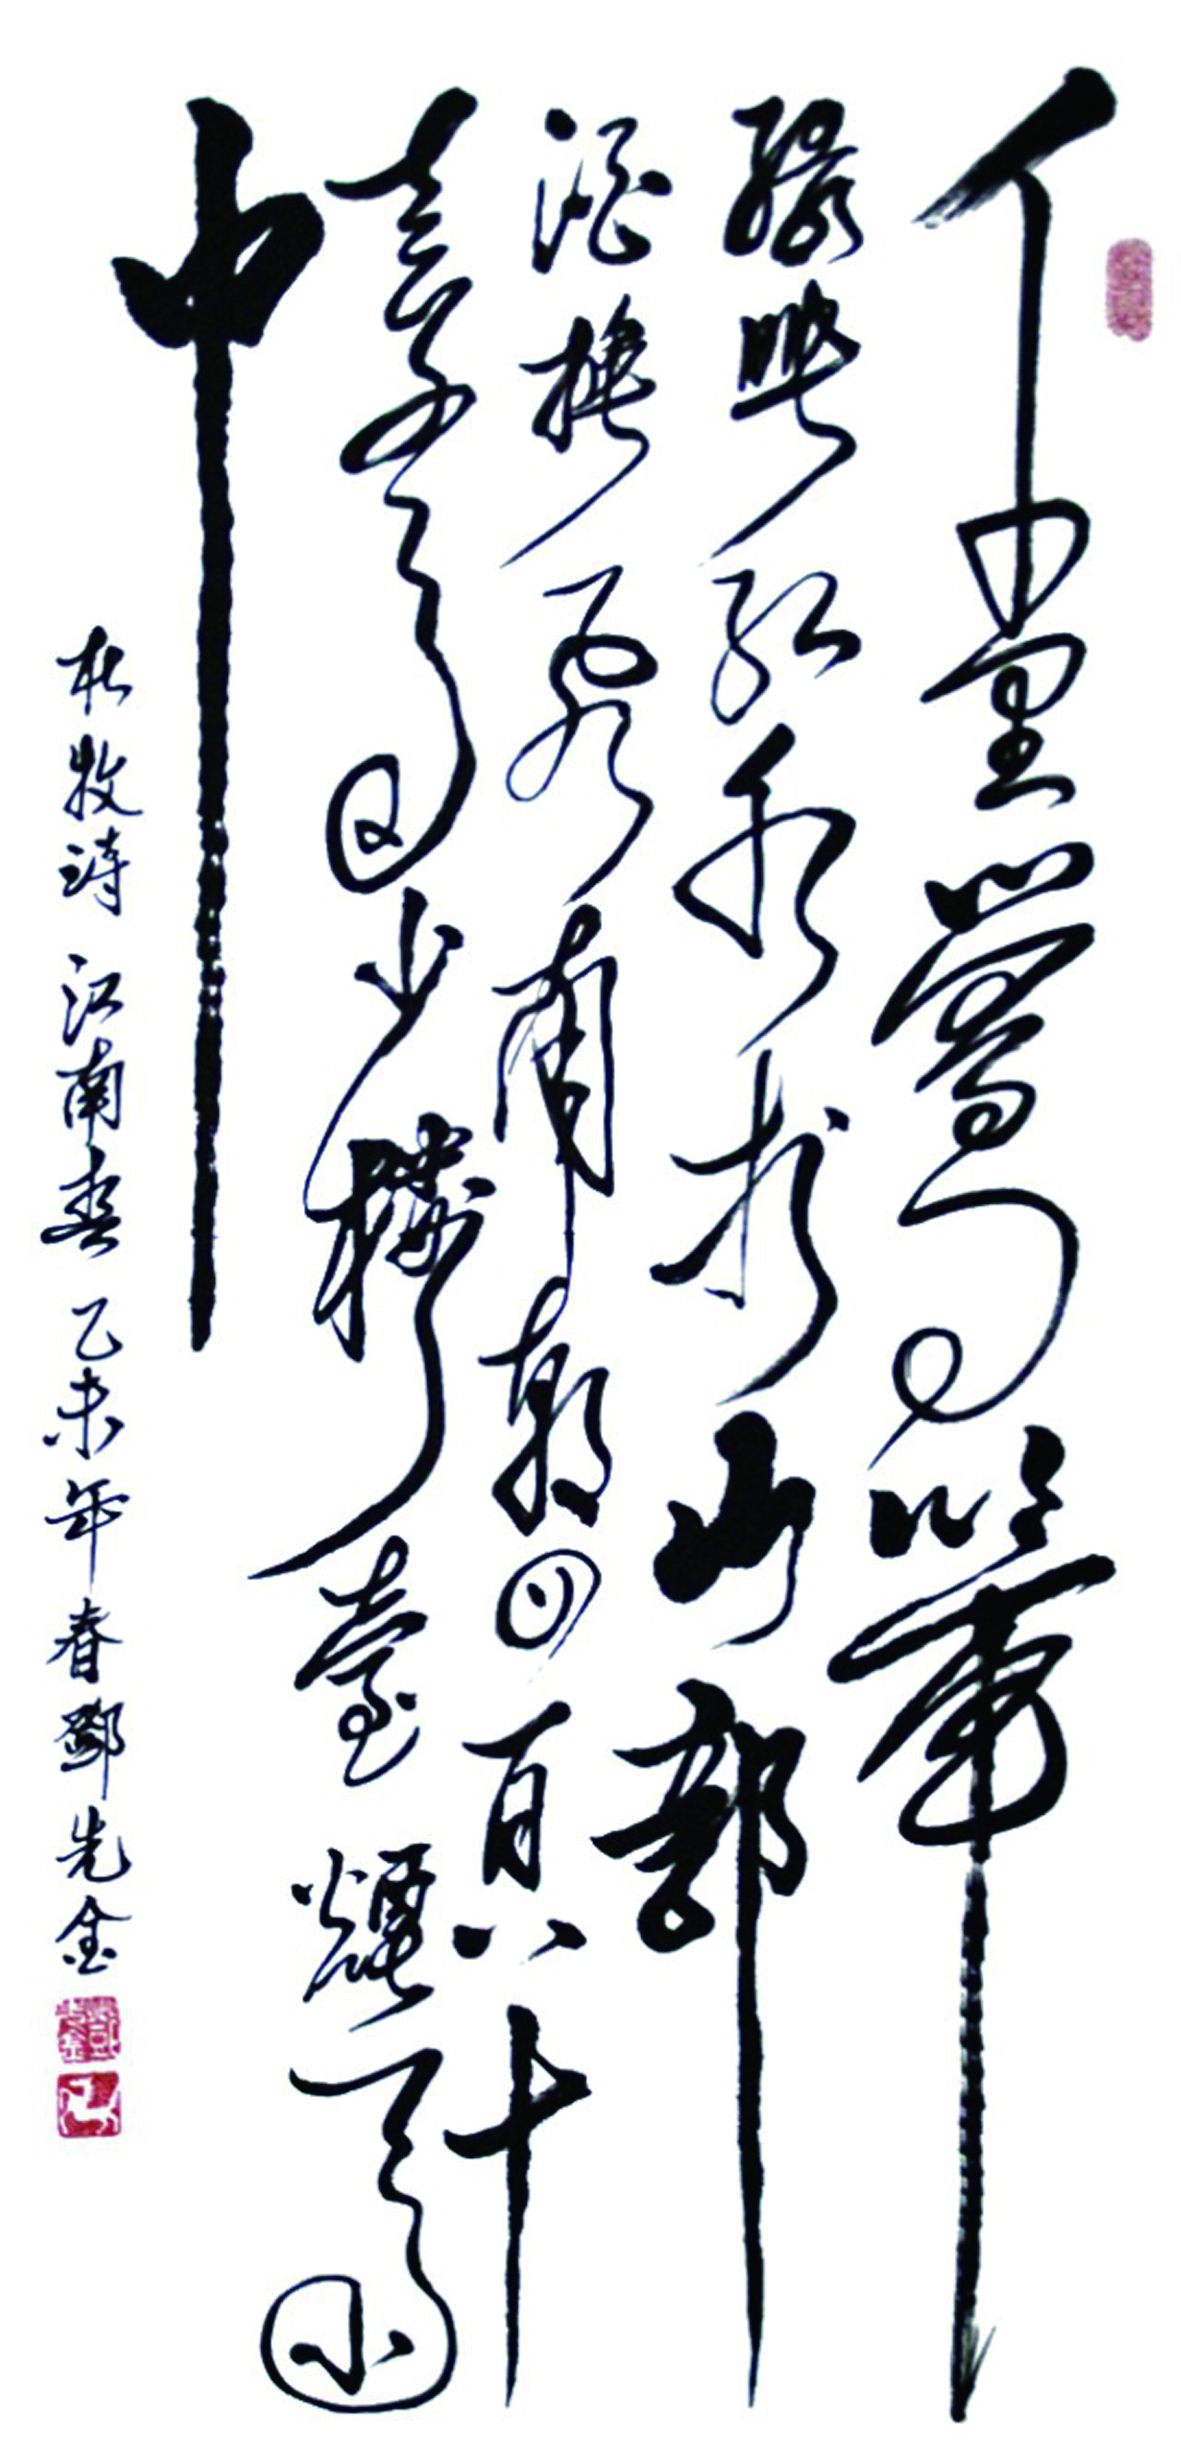 千里鶯啼
綠映紅水村山郭
酒旗風南朝四百八十
寺多少樓臺煙雨
中
杜牧诗 江南春 乙未年春鄧先金